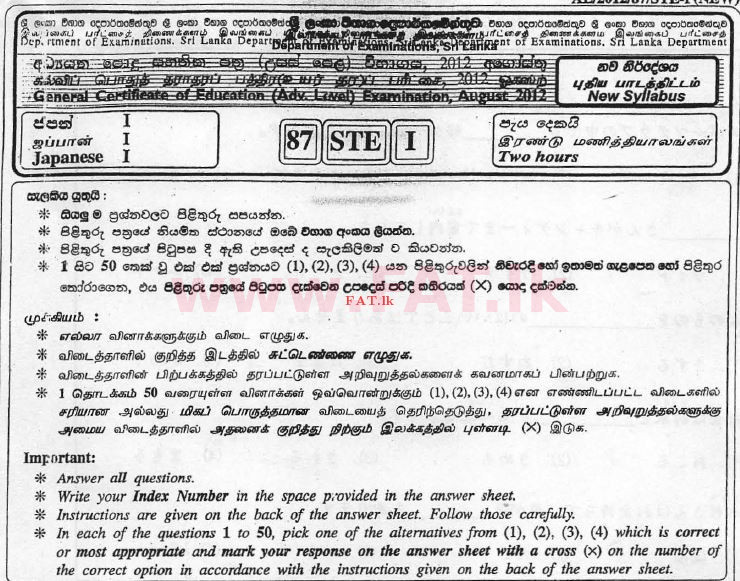 AL/2012/87/STE-I (NEW)
ශ්‍රී ලංකා විභාග දෙපාර්තමේන්තුව
இலங்கைப் பரீட்சைத் திணைக்களம்
Department of Examinations, Sri Lanka
අධ්‍යයන පොදු සහතික පත්‍ර (උසස් පෙළ) විභාගය, 2012 අගෝස්තු
கல்விப் பொதுத் தராதரப் பத்திர (உயர் தர)ப் பரீட்சை, 2012 ஓகஸ்ற்
General Certificate of Education (Adv. Level) Examination, August 2012
නව නිර්දේශය
புதிய பாடத்திட்டம்
New Syllabus
ජපන් I
ஜப்பான் I
Japanese I
87 STE I
පැය දෙකයි
இரண்டு மணித்தியாலங்கள்
Two hours
සැලකිය යුතුයි :
* සියලු ම ප්‍රශ්නවලට පිළිතුරු සපයන්න.
* පිළිතුරු පත්‍රයේ නියමිත ස්ථානයේ ඔබේ විභාග අංකය ලියන්න.
* පිළිතුරු පත්‍රයේ පිටුපස දී ඇති උපදෙස් ද සැලකිලිමත් ව කියවන්න.
* 1 සිට 50 තෙක් වූ එක් එක් ප්‍රශ්නයට (1), (2), (3), (4) යන පිළිතුරුවලින් නිවැරදි හෝ ඉතාමත් ගැළපෙන හෝ පිළිතුර
තෝරාගෙන, එය පිළිතුරු පත්‍රයේ පිටුපස දැක්වෙන උපදෙස් පරිදි කතිරයක් (X) යොදා දක්වන්න.
www.FAT.lk
FAT.lk
முக்கியம் :
* எல்லா வினாக்களுக்கும் விடை எழுதுக.
* விடைத்தாளில் குறித்த இடத்தில் சுட்டெண்ணை எழுதுக.
* விடைத்தாளின் பிற்பக்கத்தில் தரப்பட்டுள்ள அறிவுறுத்தல்களைக் கவனமாகப் பின்பற்றுக.
* 1 தொடக்கம் 50 வரையுள்ள வினாக்கள் ஒவ்வொன்றுக்கும் (1), (2), (3), (4) என எண்ணிடப்பட்ட விடைகளில்
சரியான அல்லது மிகப் பொருத்தமான விடையைத் தெரிந்தெடுத்து, தரப்பட்டுள்ள அறிவுறுத்தல்களுக்கு
அமைய விடைத்தாளில் அதனைக் குறித்து நிற்கும் இலக்கத்தில் புள்ளடி (X) இடுக.
Important:
* Answer all questions.
* Write your Index Number in the space provided in the answer sheet.
* Instructions are given on the back of the answer sheet. Follow those carefully.
* In each of the questions 1 to 50, pick one of the alternatives from (1), (2), (3), (4) which is correct
or most appropriate and mark your response on the answer sheet with a cross (X) on the number of
the correct option in accordance with the instructions given on the back of the answer sheet.